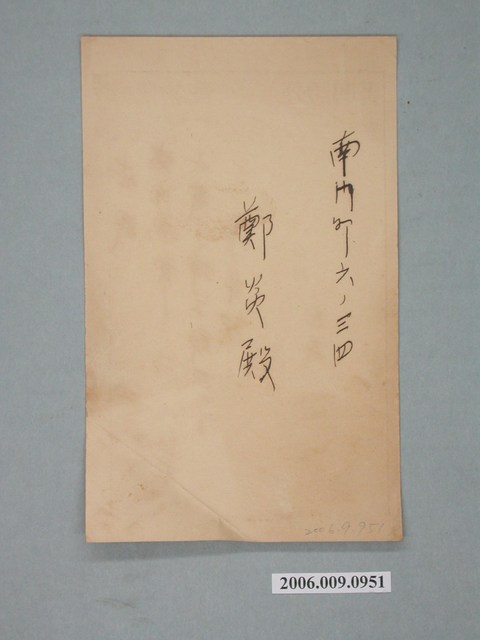 南門町六ノ三四
鄭炎殿
2006.9.951
2006.009.0951